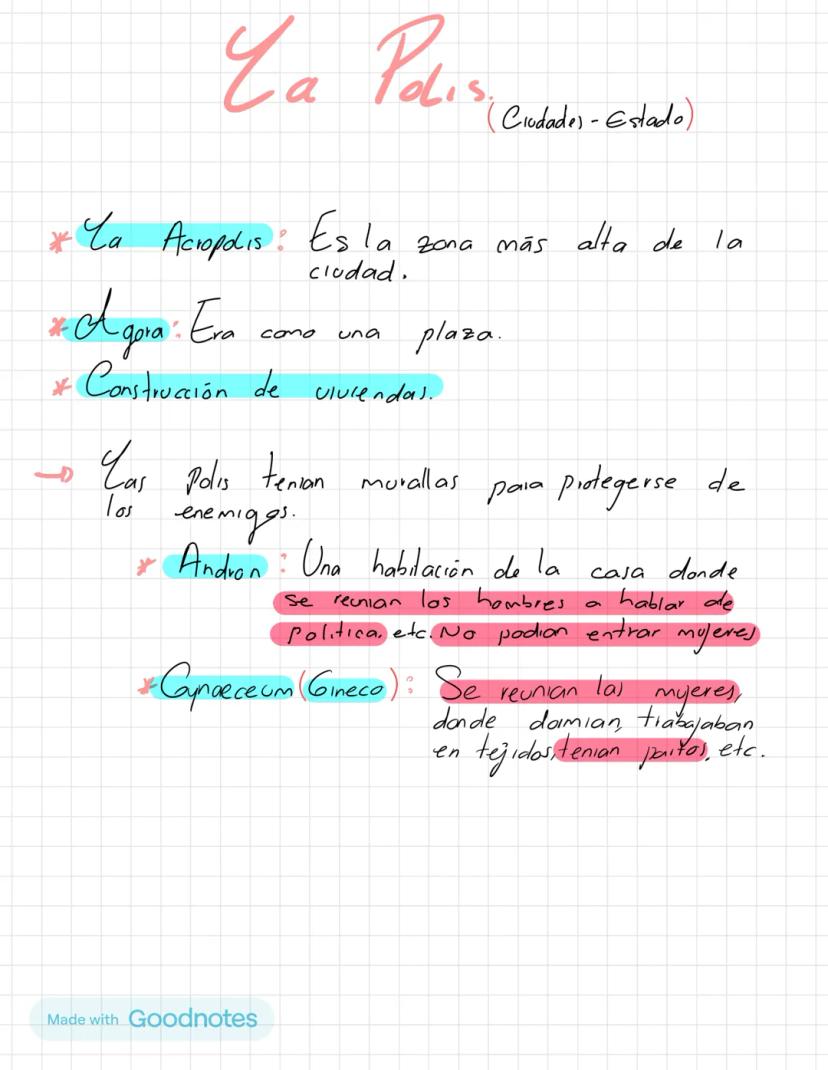 La Polis.
(Ciudades - Estado)
* La Acropolis: Es la zona más alta de la
ciudad.
* Agora: Era como una plaza.
* Construcción de viviendas.
→ Las polis tenian murallas para protegerse de
los enemigos.
* Andron: Una habitación de la casa donde
se reunian los hombres a hablar de
politica, etc. No podian entrar mujeres
* Gynaeceum (Gineco): Se reunian las mujeres,
donde dormian, trabajaban
en tejidos, tenian partos, etc.
Made with Goodnotes